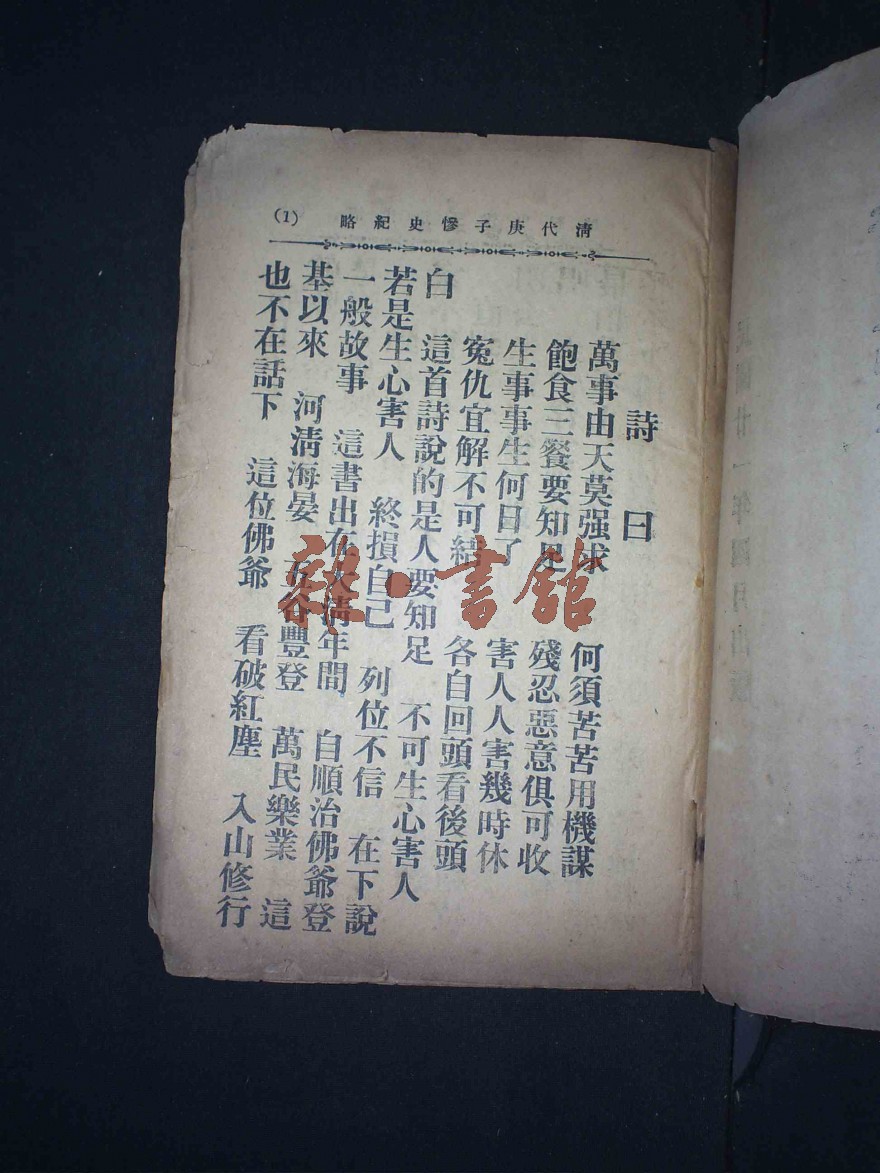 清代庚子慘史紀略 (1)
詩曰
萬事由天莫强求 何須苦苦用機謀
飽食三餐要知足 殘忍惡意俱可收
生事事生何日了 害人人害幾時休
寃仇宜解不可結 各自回頭看後頭
白 這首詩說的是人要知足 不可生心害人
若是生心害人 終損自己 列位不信 在下說
一般故事 這書出在大清年間 自順治佛爺登
基以來 河淸海晏 五谷豐登 萬民樂業 這
也不在話下 這位佛爺 看破紅塵 入山修行
雜·書館